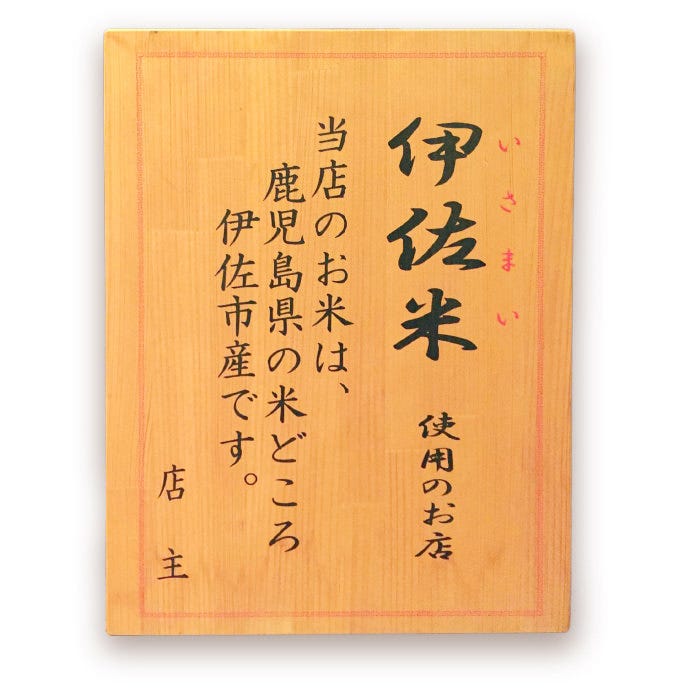 いさまい
伊佐米
使用のお店
当店のお米は、
鹿児島県の米どころ
伊佐市産です。
店主